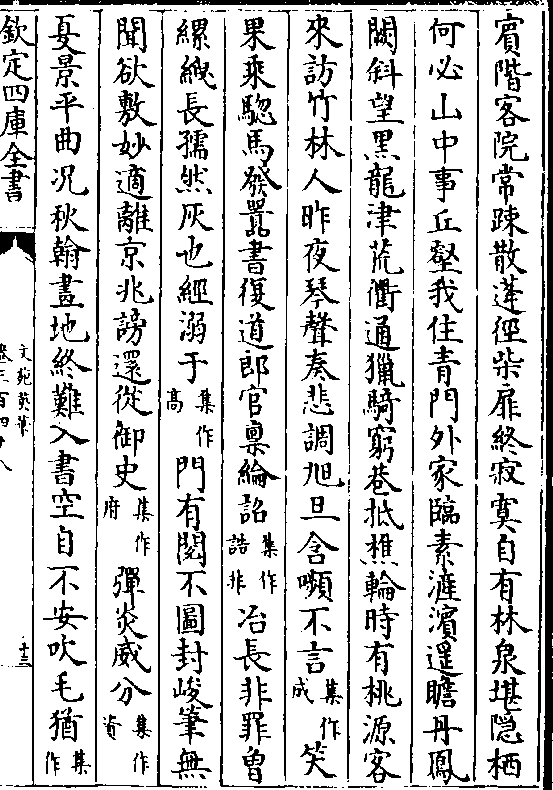 賓階客院常疎散蓬徑柴扉終寂寞自有林泉堪隠栖
何必山中事丘壑我住青門外家臨素滻濱遥瞻丹鳳
闕斜望黒龍津荒衢通獵騎窮巷抵樵輪時有桃源客
來訪竹林人昨夜琴聲奏悲調旭旦含嚬不言集作成笑
果乘驄馬發囂書復道郎官稟綸詔集作誥非冶長非罪曽
縲絏長孺然灰也經溺于集作高門有閱不圖封峻筆無
聞欲敷妙適離京兆謗還從御史集作府彈炎威分集作資
夏景平曲况秋翰畫地終難入書空自不安吹毛猶集作
欽定四庫全書
文苑英華
卷三百四十八
十三